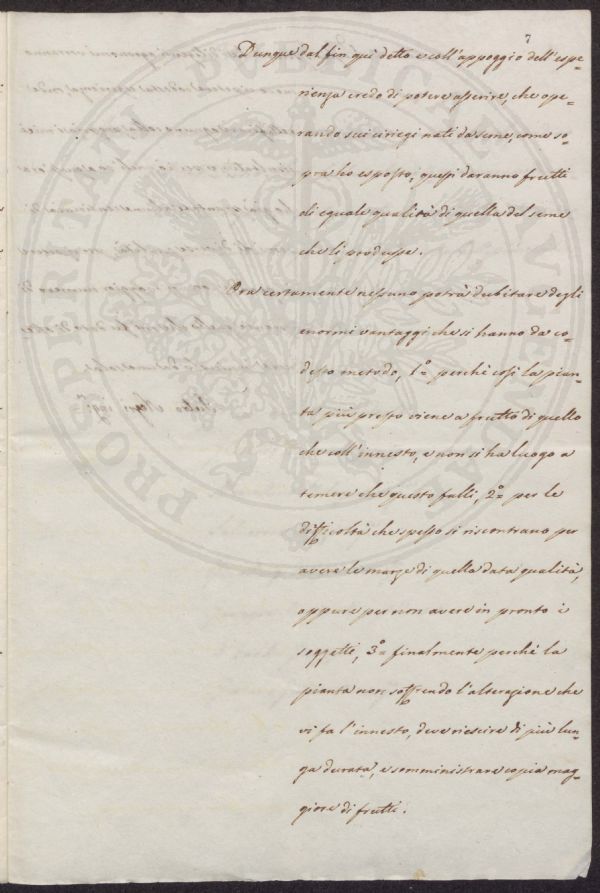 7
Dunque dal fin quì detto e coll'appoggio dell'espe=
rienza credo di potere asserire, che ope=
rando sui ciriegi nati da seme, come so=
pra ho esposto, questi daranno frutti
di eguale qualità di quella del seme
che li produsse.
Ora certamente nessuno potrà dubitare degli
enormi vantaggi che si hanno da co=
desto metodo, 1.º= perchè così la pian=
ta più presto viene a frutto di quello
che coll'innesto, e non si ha luogo a
temere che questo falli, 2.º= per le
difficoltà che spesso si riscontrano per
avere le marze di quella data qualità,
oppure per non avere in pronto i
soggetti, 3.º= finalmente perchè la
pianta non soffrendo l'alterazione che
vi fa l'innesto, deve riescire di più lun=
ga durata, e somministrare copia mag=
giore di frutti.
PROSPERITATI PUBLICAE AUGENDAE